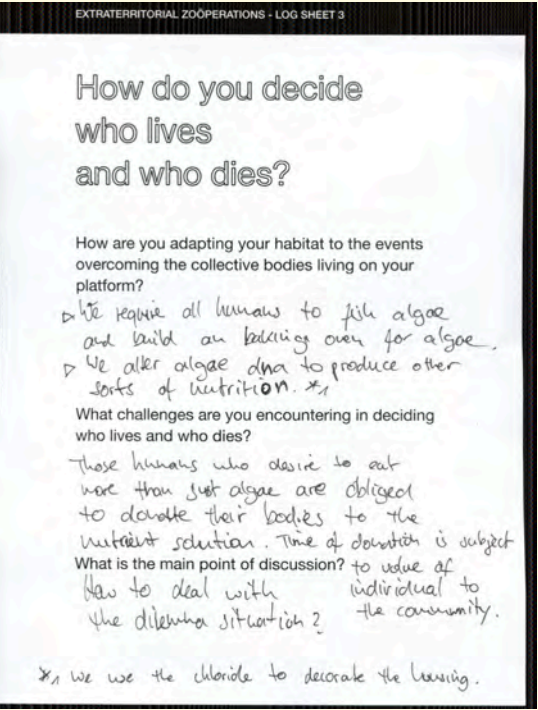 EXTRATERRITORIAL ZOÖPERATIONS - LOG SHEET 3
How do you decide
who lives
and who dies?
How are you adapting your habitat to the events
overcoming the collective bodies living on your
platform?
▷ We require all humans to fish algae
and build an baking oven for algae.
▷ We alter algae dna to produce other
sorts of nutrition. *1
What challenges are you encountering in deciding
who lives and who dies?
Those humans who desire to eat
more than just algae are obliged
to donate their bodies to the
nutrient solution. Time of donation is subject
to value of
individual to
the community.
What is the main point of discussion?
How to deal with
the dilemma situation?
*1 We use the chloride to decorate the housing.